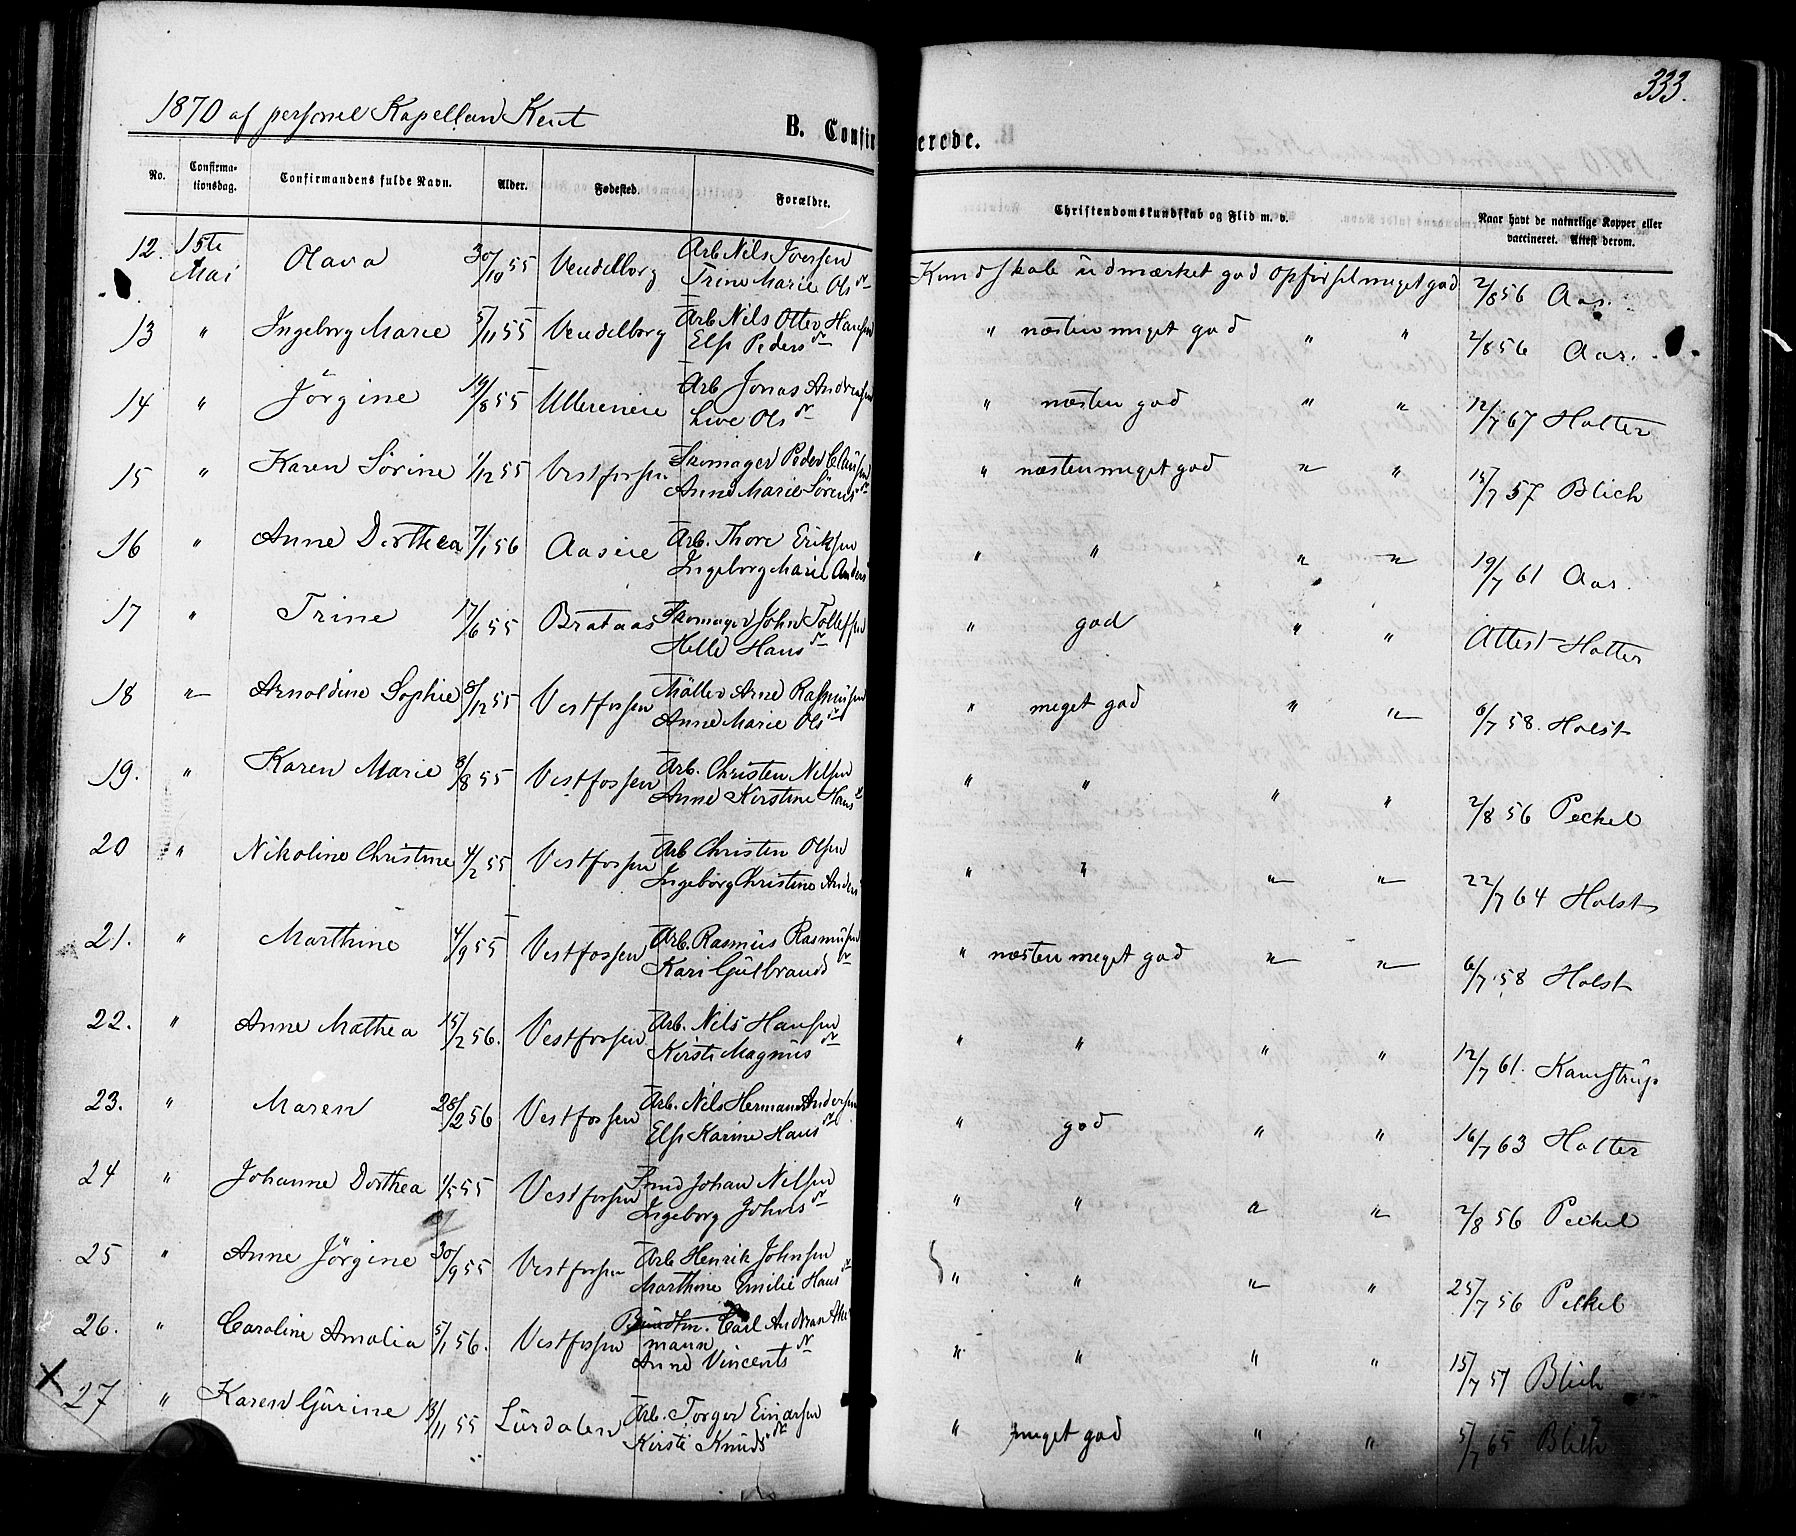 333.
1870 af personel Kapellan Kent
B. Confirmerede.
No. Confirma-tionsdag. Confirmandens fulde Navn. Alder. Fødested. Forældre. Christendomskundskab og Flid m. v. Naar havt de naturlige Kopper eller vaccineret. Attest derom.
12. 15te Mai Olava 30/10 55 Vendelborg Arb Nils Iversen Kundskab udmærket god opførsel meget god 2/8 56 Aas.
Trine Marie Olsdr
13 " Ingeborg Marie 5/11 55 Vendelborg Arb Nils Otter Hansen " næsten meget god " " 2/8 56 Aas.
Else Pedersdr
14 " Jörgine 19/8 55 Ullereneie Arb Jonas Andreasen " næsten god " " 12/7 67 Holter
Live Olsdr
15 " Karen Sörine 1/12 55 Vestfossen Skomager Peder Clausen " næsten meget god " " 15/7 57 Blich
Anne Marie Sörensdr
16 " Anne Dorthea 7/1 56 Aaseie Arb. Thore Eriksen " " " " 19/7 61 Aas.
Ingeborg Marie Anders
17 " Trine 17/6 55 Brataas Skomager John Tollefsen " god " " Attest Holter
Helle Hansdr
18 " Arnoldine Sophie 8/12 55 Vestfossen Möller Arne Rasmusen " meget god " " 6/7 58. Holst
Anne Marie Olsdr
19. " Karen Marie 8/8 55 Vestfossen Arb. Christen Nilsen " " " " 2/8 56 Peckel
Anne Kirstine Hansdr
20 " Nikoline Christine 4/2 55 Vestfossen Arb Christen Olsen " " " " 22/7 64 Holst
Ingeborg Christine Anders
21. " Marthine 4/9 55 Vestfossen Arb. Rasmus Rasmusen " næsten meget god " " 6/7 58 Holst
Kari Gulbrandsdr
22. " Anne Mathea 15/2 56. Vestfossen Arb. Nils Hansen " " " " 12/7 61. Kamstrup
Kirsti Magnusdr
23. " Maren 28/2 56 Vestfossen Arb. Nils Herman Andersen " god " " 16/7 63 Holter
Else Karine Hansdr
24 " Johanne Dorthea 1/5 55 Vestfossen Smed Johan Nilsen " " " " 2/8 56 Peckel
Ingeborg Johnsdr
25 " Anne Jörgine 30/9 55 Vestfossen Arb Henrik Johnsen " " " " 25/7 56 Peckel
Marthine Emilie Hansdr
26. " Caroline Amalia 5/1 56. Vestfossen Carl Andreas Ake " " " " 15/7 57 Blich
mann
Anne Vincentsdr
27 " Karen Gurine 13/11 55 Lurdalen Arb. Torger Einarsen " meget god " " 5/7 65 Blich
Kirsti Knudsdr